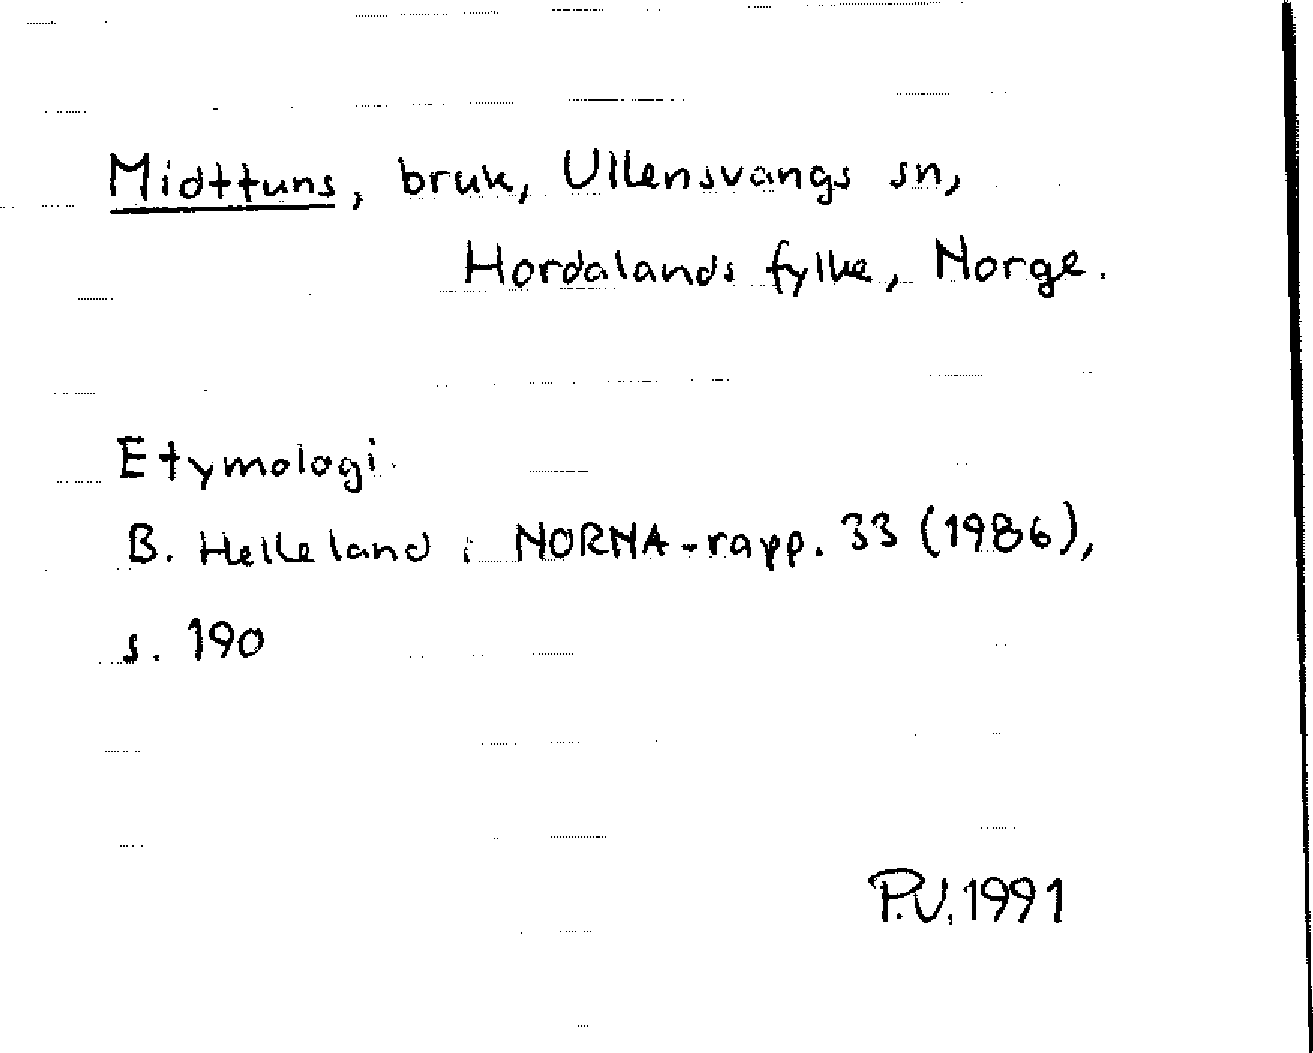 Midttuns, bruk, Ullensvangs sn,
Hordalands fylke, Norge.
Etymologi
B. Helleland i NORNA-rapp. 33 (1986),
s. 190
P.V. 1991